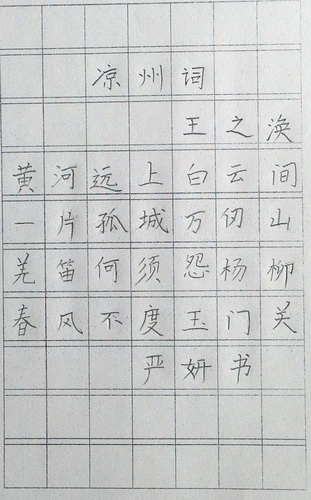 凉州词
王之涣
黄河远上白云间
一片孤城万仞山
羌笛何须怨杨柳
春风不度玉门关
严妍书